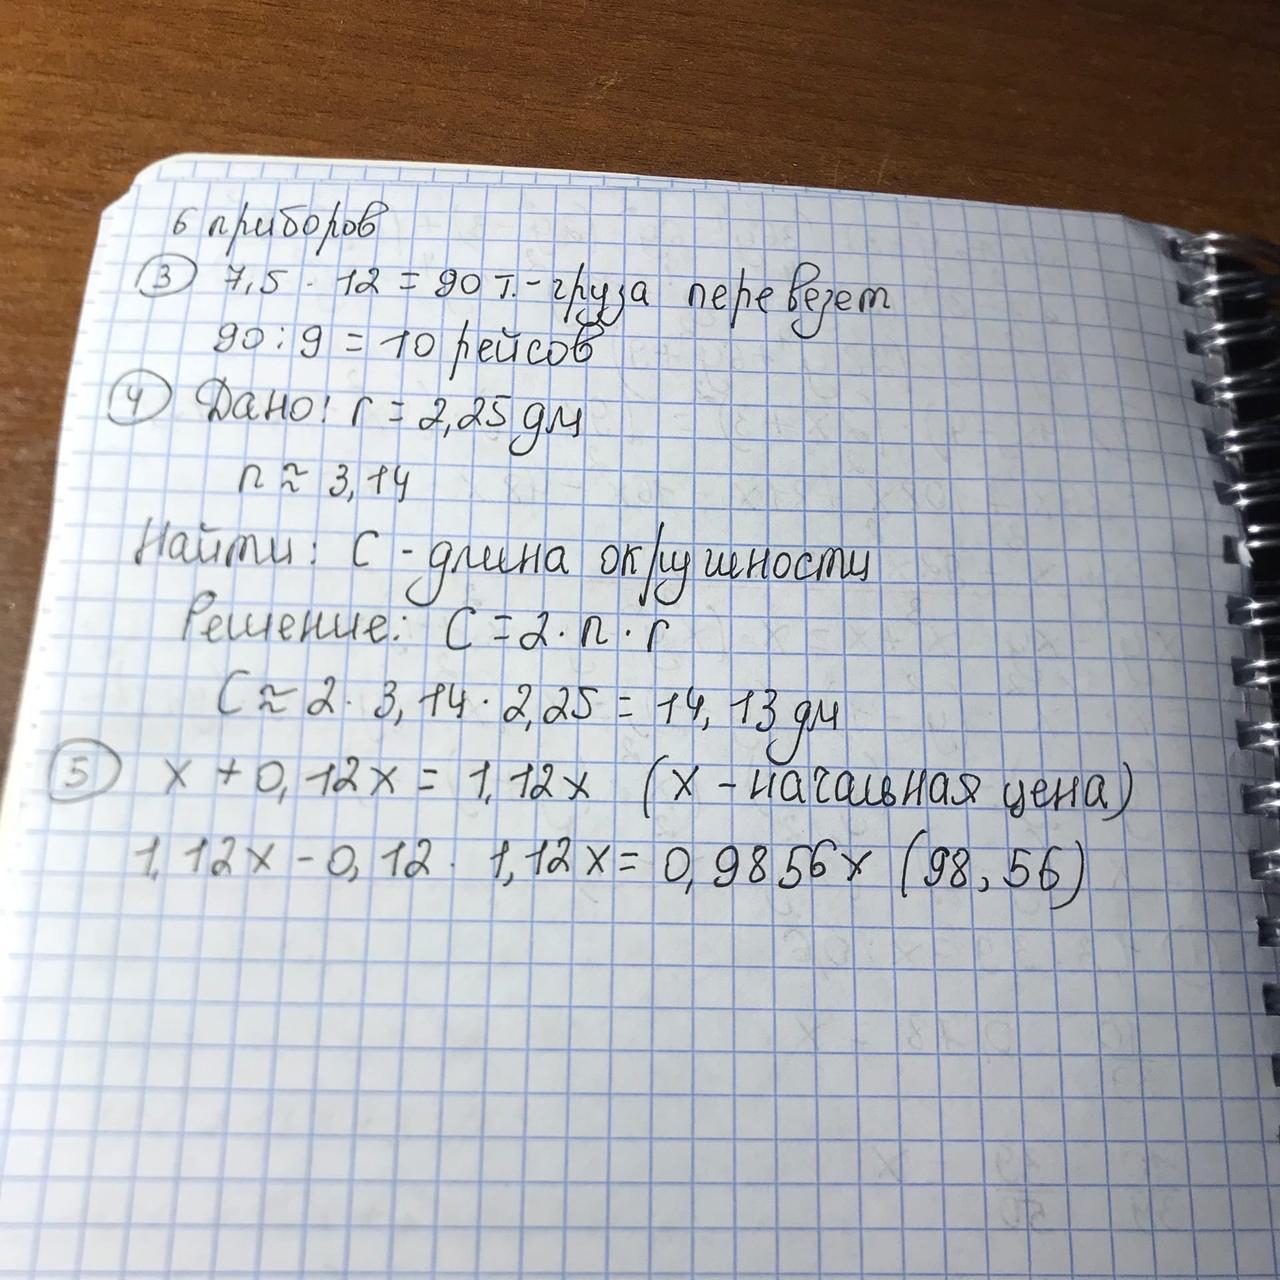 6 приборов
③ 7,5 · 12 = 90 т. - груза перевезет
90 : 9 = 10 рейсов
④ Дано: r = 2,25 дм
п ≈ 3,14
Найти: С - длина окружности
Решение: С = 2 · п · r
С ≈ 2 · 3,14 · 2,25 = 14,13 дм
⑤ х + 0,12х = 1,12х (х - начальная цена)
1,12х - 0,12 · 1,12х = 0,9856х (98,56)